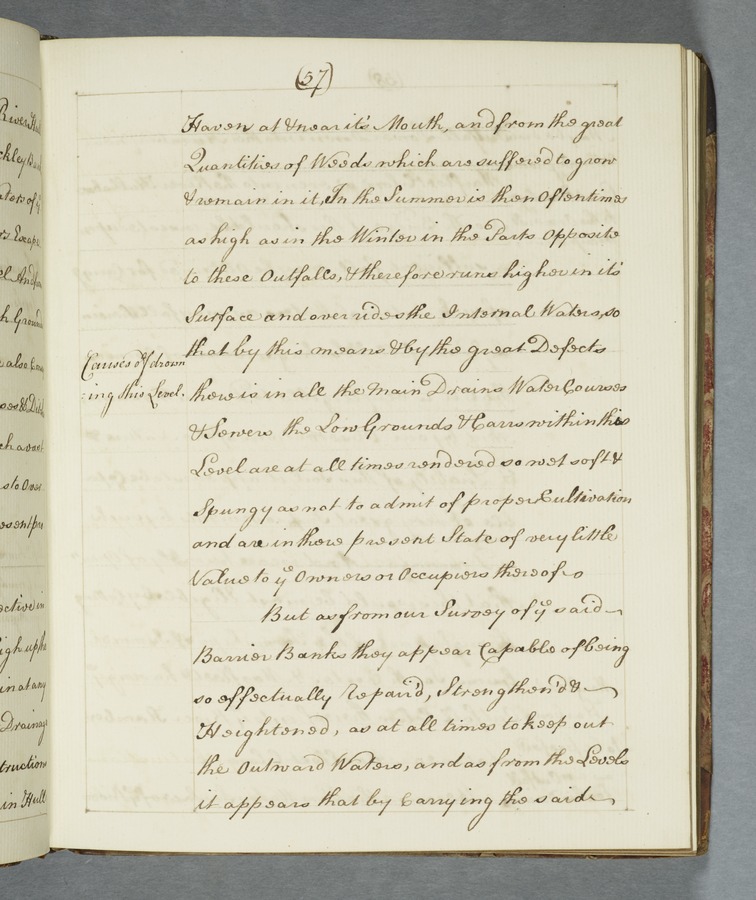 River Hull
ckley B
aters of y
rs Escape
el And
h Ground
also
ses & D
ch a vast
s to Over
esent
ective in
igh up the
in at any
Drainage
tructions
in Hull
(57)
Haven at & near it's Mouth, and from the great
Quantities of Weeds which are suffered to grow
& remain in it, In the Summer is then Oftentimes
as high as in the Winter in the Parts Opposite
to these Outfalls, & therefore runs higher in it's
Surface and over rides the Internal Waters, so
that by this means & by the great Defects
Causes of drown
:ing this Level.
there is in all the Main Drains Water Courses
& Sewers the Low Grounds & Carrs within this
Level are at all times rendered so wet soft &
Spungy as not to admit of proper Cultivation
and are in there present State of very little
Value to ye Owners or Occupiers thereof
But as from our Survey of ye said
Barrier Banks they appear Capable of being
so effectually repair'd, Strengthen'd &
Heightened, as at all times to keep out
the Outward Waters, and as from the Levels
it appears that by Carrying the said